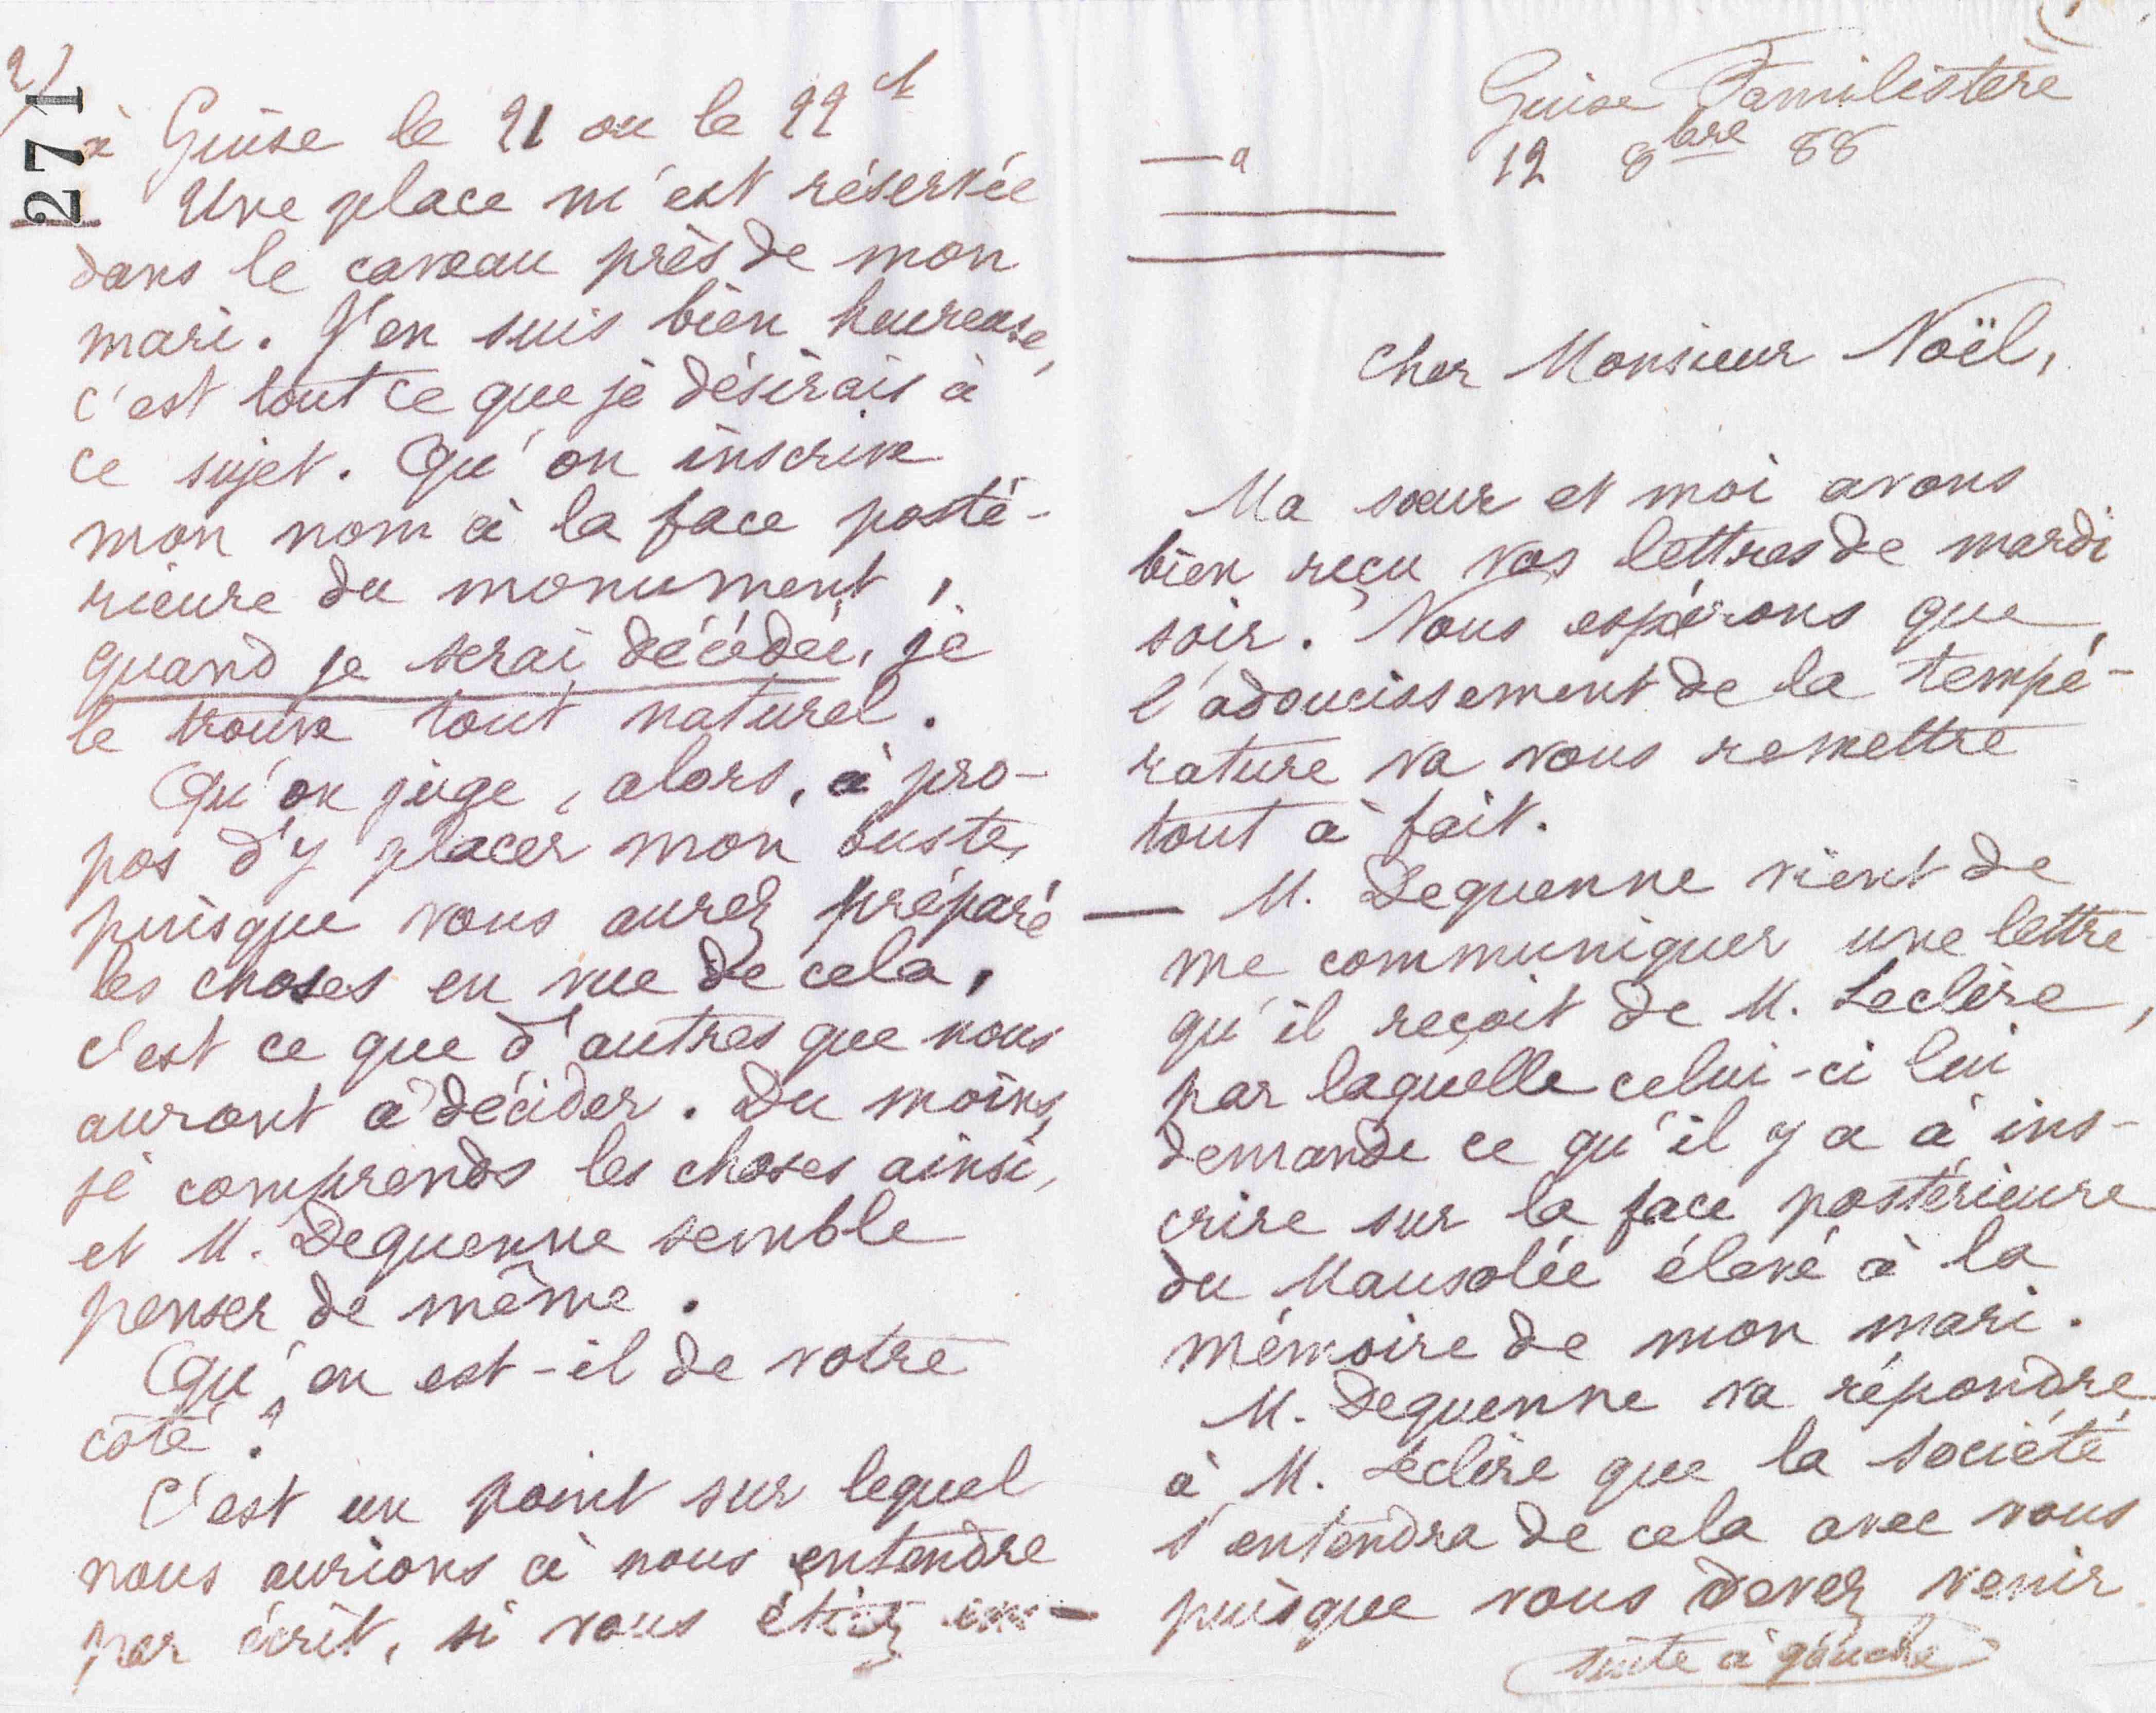 Guise Familistère
12 8bre 88
Cher Monsieur Noël,
Ma sœur et moi avons
bien reçu vos lettres de mardi
soir. Nous espérons que
l'adoucissement de la tempé-
rature va vous remettre
tout à fait.
— M. Dequenne vient de
me communiquer une lettre
qu'il reçoit de M. Leclère,
par laquelle celui-ci lui
demande ce qu'il y a à ins-
crire sur la face postérieure
du Mausolée élevé à la
mémoire de mon mari.
M. Dequenne va répondre
à M. Leclère que la société
s'entendra de cela avec vous
puisque vous devez venir
suite à gauche
2/
271
à Guise le 21 ou le 22 ct
Une place m'est réservée
dans le caveau près de mon
mari. J'en suis bien heureuse,
c'est tout ce que je désirais à
ce sujet. Qu'on inscrive
mon nom à la face posté-
rieure du monument,
quand je serai décédée, je
le trouve tout naturel.
Qu'on juge, alors, à pro-
pos d'y placer mon buste,
puisque vous aurez préparé
les choses en vue de cela,
c'est ce que d'autres que nous
auront à décider. Du moins,
je comprends les choses ainsi,
et M. Dequenne semble
penser de même.
Qu'en est-il de votre
côté ?
C'est un point sur lequel
nous aurions à nous entendre
par écrit, si vous étiez